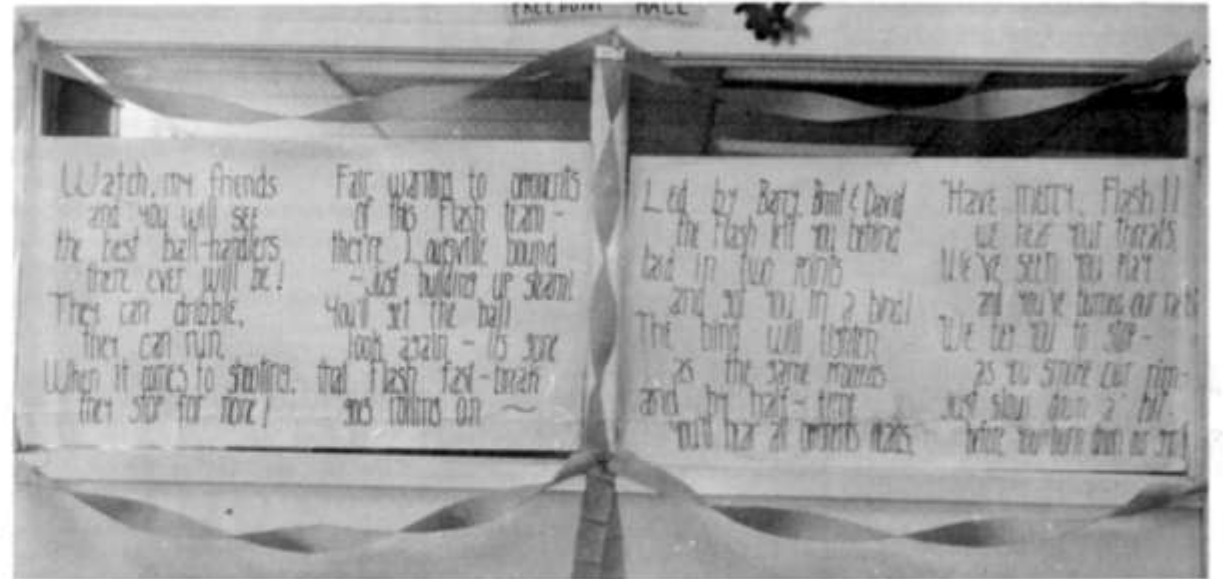 FREEDOM HALL
Watch, my friends
and you will see
the best ball-handlers
there ever will be!
They can dribble,
they can run.
When it comes to shooting,
they stop for none!
Fair warning to opponents
of this Flash team -
they're Louisville bound
- just building up steam!
You'll get the ball
look again - its gone
that Flash fast-break
goes rolling on ~
Led by Barry, Brint & David
the Flash left you behind
laid in two points
and got you in a bind!
The bind will tighten
as the game proceeds
and by half-time
you'll hear all opponents pleads,
"Have mercy, Flash!!
we hear your threats.
We've seen you play
and you've burning our nets
We beg you to stop -
as you smoke our rim -
Just slow down a bit..
before you burn down our gym!